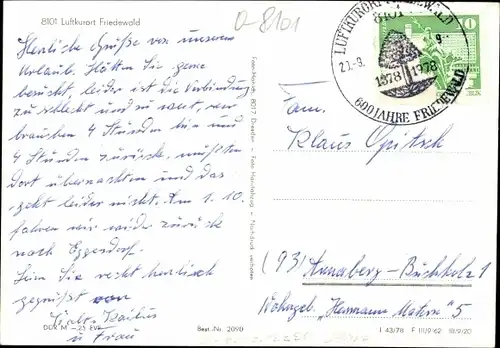 8101 Luftkurort Friedewald
O-8101
Herzliche Grüße von unserem
Urlaub. Hätten Sie gerne
besucht, leider ist die Verbindung
zu schlecht und zu weit, wir
brauchen 4 Stunden hin und
4 Stunden zurück, müßten
dort übernachten und das
geht leider nicht. Am 1.10.
fahren wir wieder zurück
nach Eggersdorf.
Seien Sie recht herzlich
gegrüßt von
u Frau
DDR M - 25 EVP
Best.-Nr. 2090
LUFTKURORT FRIEDEWALD
8101
1878 1978
600 JAHRE FRIEDEWALD
10
Fam.
Klaus Opitsch
(93) Annaberg-Buchholz 1
Wohngel. "Hermann Matern" 5
I 43/78 F III/9/62 III/9/20